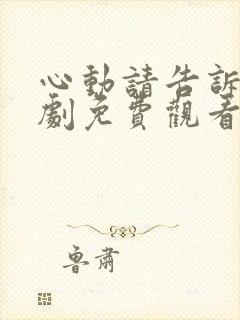 心動請告訴
劇免費觀看
魯肅